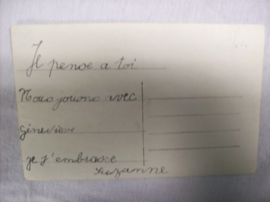 Je pense a toi
Nous jouons avec
geneviève
je t'embrasse
Suzanne